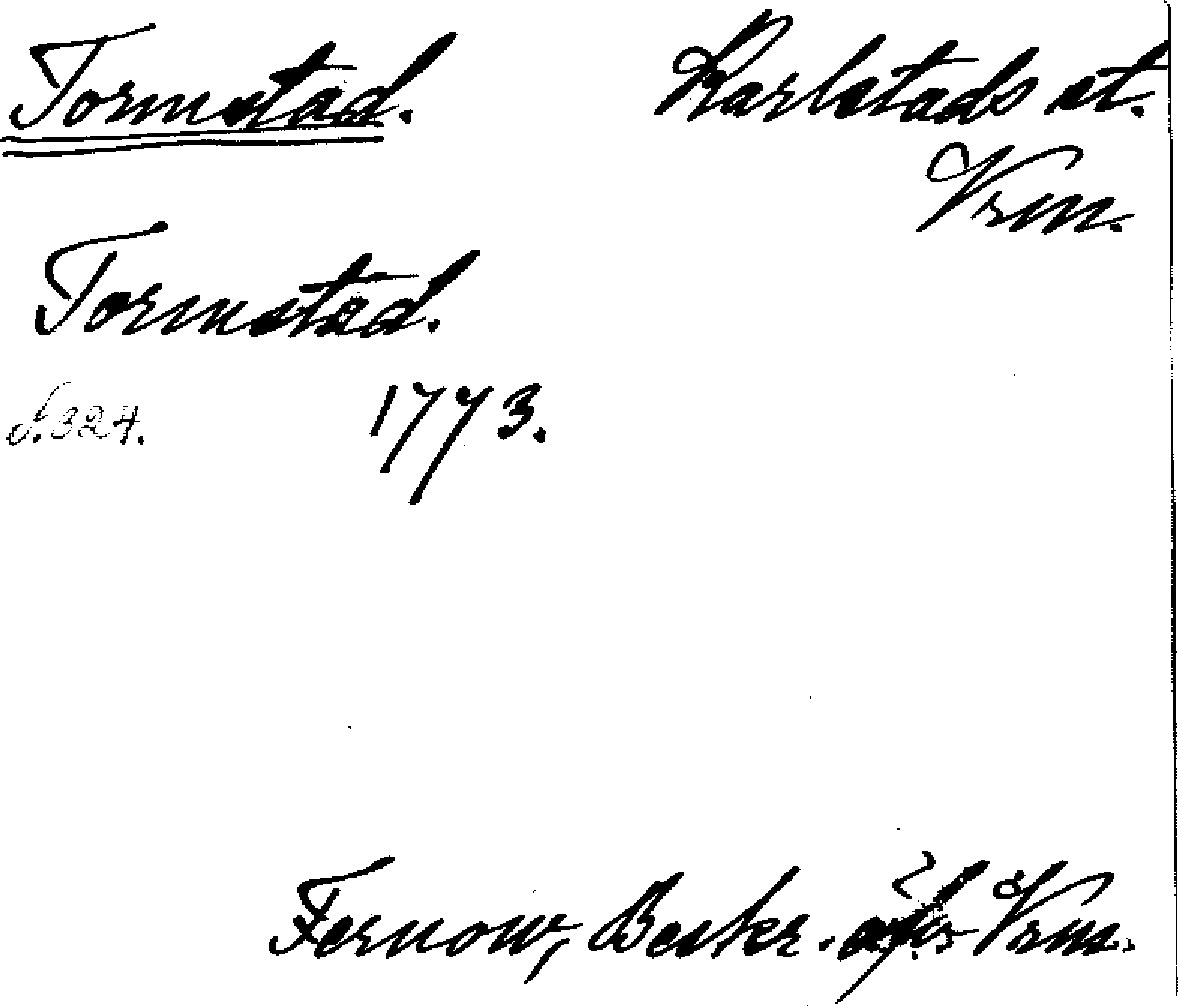 Tormstad. Karlstads st.
Vrm.
Tormstad.
S. 324. 1773.
Fernow, Beskr. öfver Vrm.